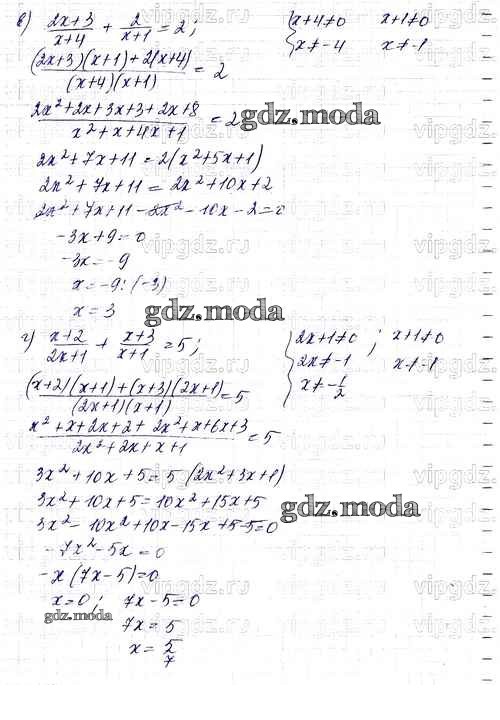 в) (2x+3)/(x+4) + 2/(x+1) = 2; { x+4≠0 x+1≠0
x≠-4 x≠-1
((2x+3)(x+1)+2(x+4))/((x+4)(x+1)) = 2
(2x²+2x+3x+3+2x+8)/(x²+x+4x+1) = 2
gdz.moda
2x²+7x+11=2(x²+5x+1)
2x²+7x+11=2x²+10x+2
2x²+7x+11-2x²-10x-2=0
-3x+9=0
-3x=-9
x=-9:(-3)
x=3
gdz.moda
г) (x+2)/(2x+1) + (x+3)/(x+1) = 5; { 2x+1≠0 ; x+1≠0
2x≠-1 x≠-1
x≠-1/2
((x+2)(x+1)+(x+3)(2x+1))/((2x+1)(x+1)) = 5
(x²+x+2x+2+2x²+x+6x+3)/(2x²+2x+x+1) = 5
3x²+10x+5=5(2x²+3x+1)
3x²+10x+5=10x²+15x+5
3x²-10x²+10x-15x+5-5=0
gdz.moda
-7x²-5x=0
-x(7x-5)=0
x=0; 7x-5=0
gdz.moda
7x=5
x=5/7
vipgdz.ru